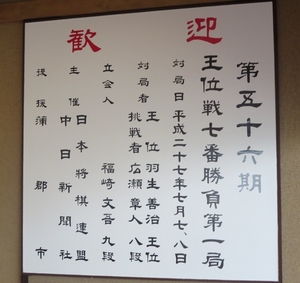 歓迎
第五十六期
王位戦七番勝負第一局
対局日 平成二十七年七月七、八日
対局者 王位 羽生善治 王位
挑戦者 広瀬章人 八段
立会人 福崎文吾 九段
主催 日本将棋連盟
中日新聞社
後援 蒲郡市